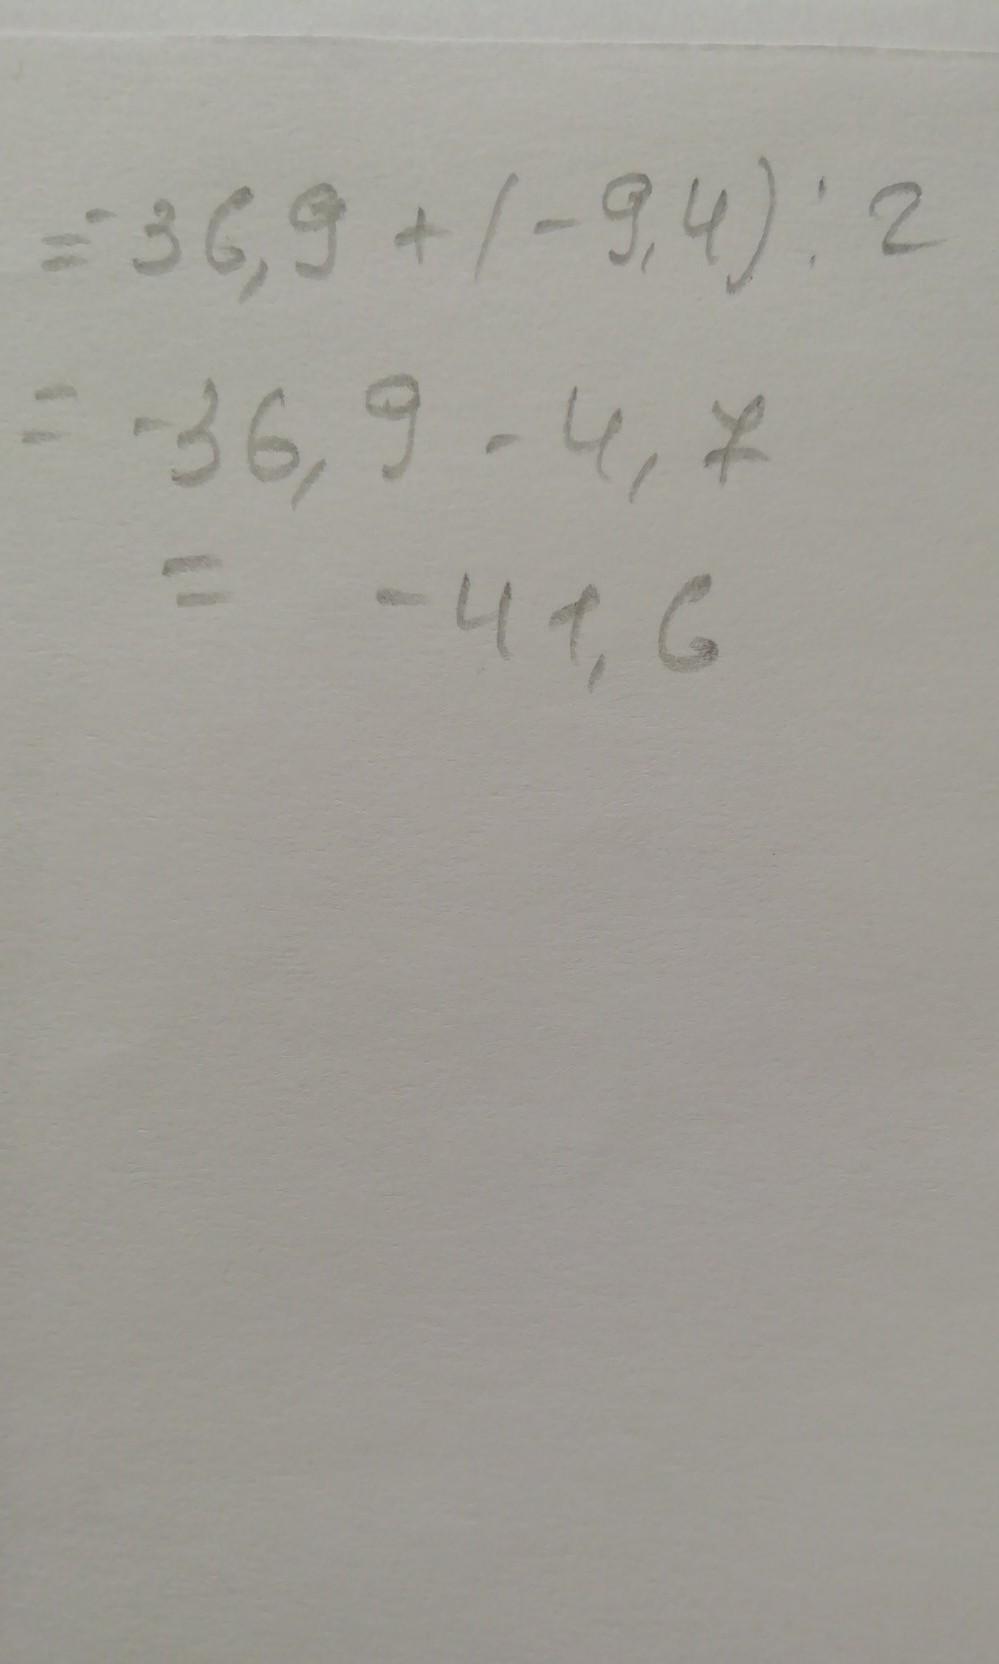 = -36,9 + (-9,4) : 2
= -36,9 - 4,7
= -41,6